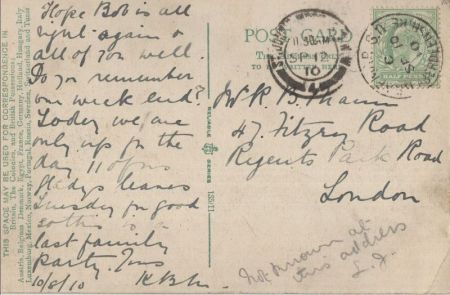 Hope Bob is all
right again &
all of you well.
Do you remember
our week end?
Today we are
only up for the
day 11 of us
Gladys leaves
Tuesday for good
so this is a
last family
party.
10/9/10
POST CARD
HALF PENNY
10
W. R. B.
47. Fitzroy Road
Regents Park Road
London
Not known at
this address
RELIABLE
SERIES
THIS SPACE MAY BE USED FOR CORRESPONDENCE IN
Britain, The Colonies, and British Possessions;
Austria, Belgium, Denmark, Egypt, France, Germany, Holland, Hungary, Italy
Luxemburg, Mexico, Norway, Portugal, Roumania, Servia, Switzerland and Tunis